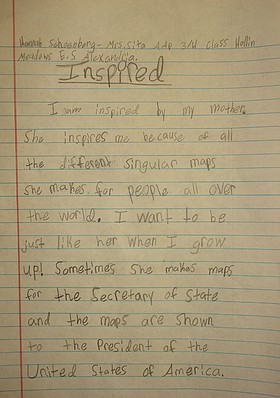 Hannah Schoenberg- Mrs. Sita AAP 3/4 class Hollin
Meadows E.S Alexandria.
Inspired
I am inspired by my mother.
She inspires me because of all
the different singular maps
she makes for people all over
the world. I want to be
just like her when I grow
up! Sometimes she makes maps
for the Secretary of State
and the maps are shown
to the President of the
United States of America.